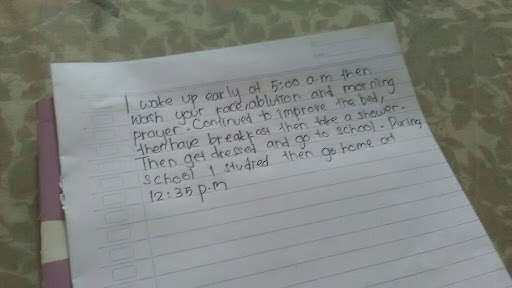 I wake up early at 5:00 a.m then
wash your face, ablution and morning
prayer. Continued to improve the bed,
then have breakfast then take a shower.
Then get dressed and go to school. During
school I studied then go home at
12:35 p.m